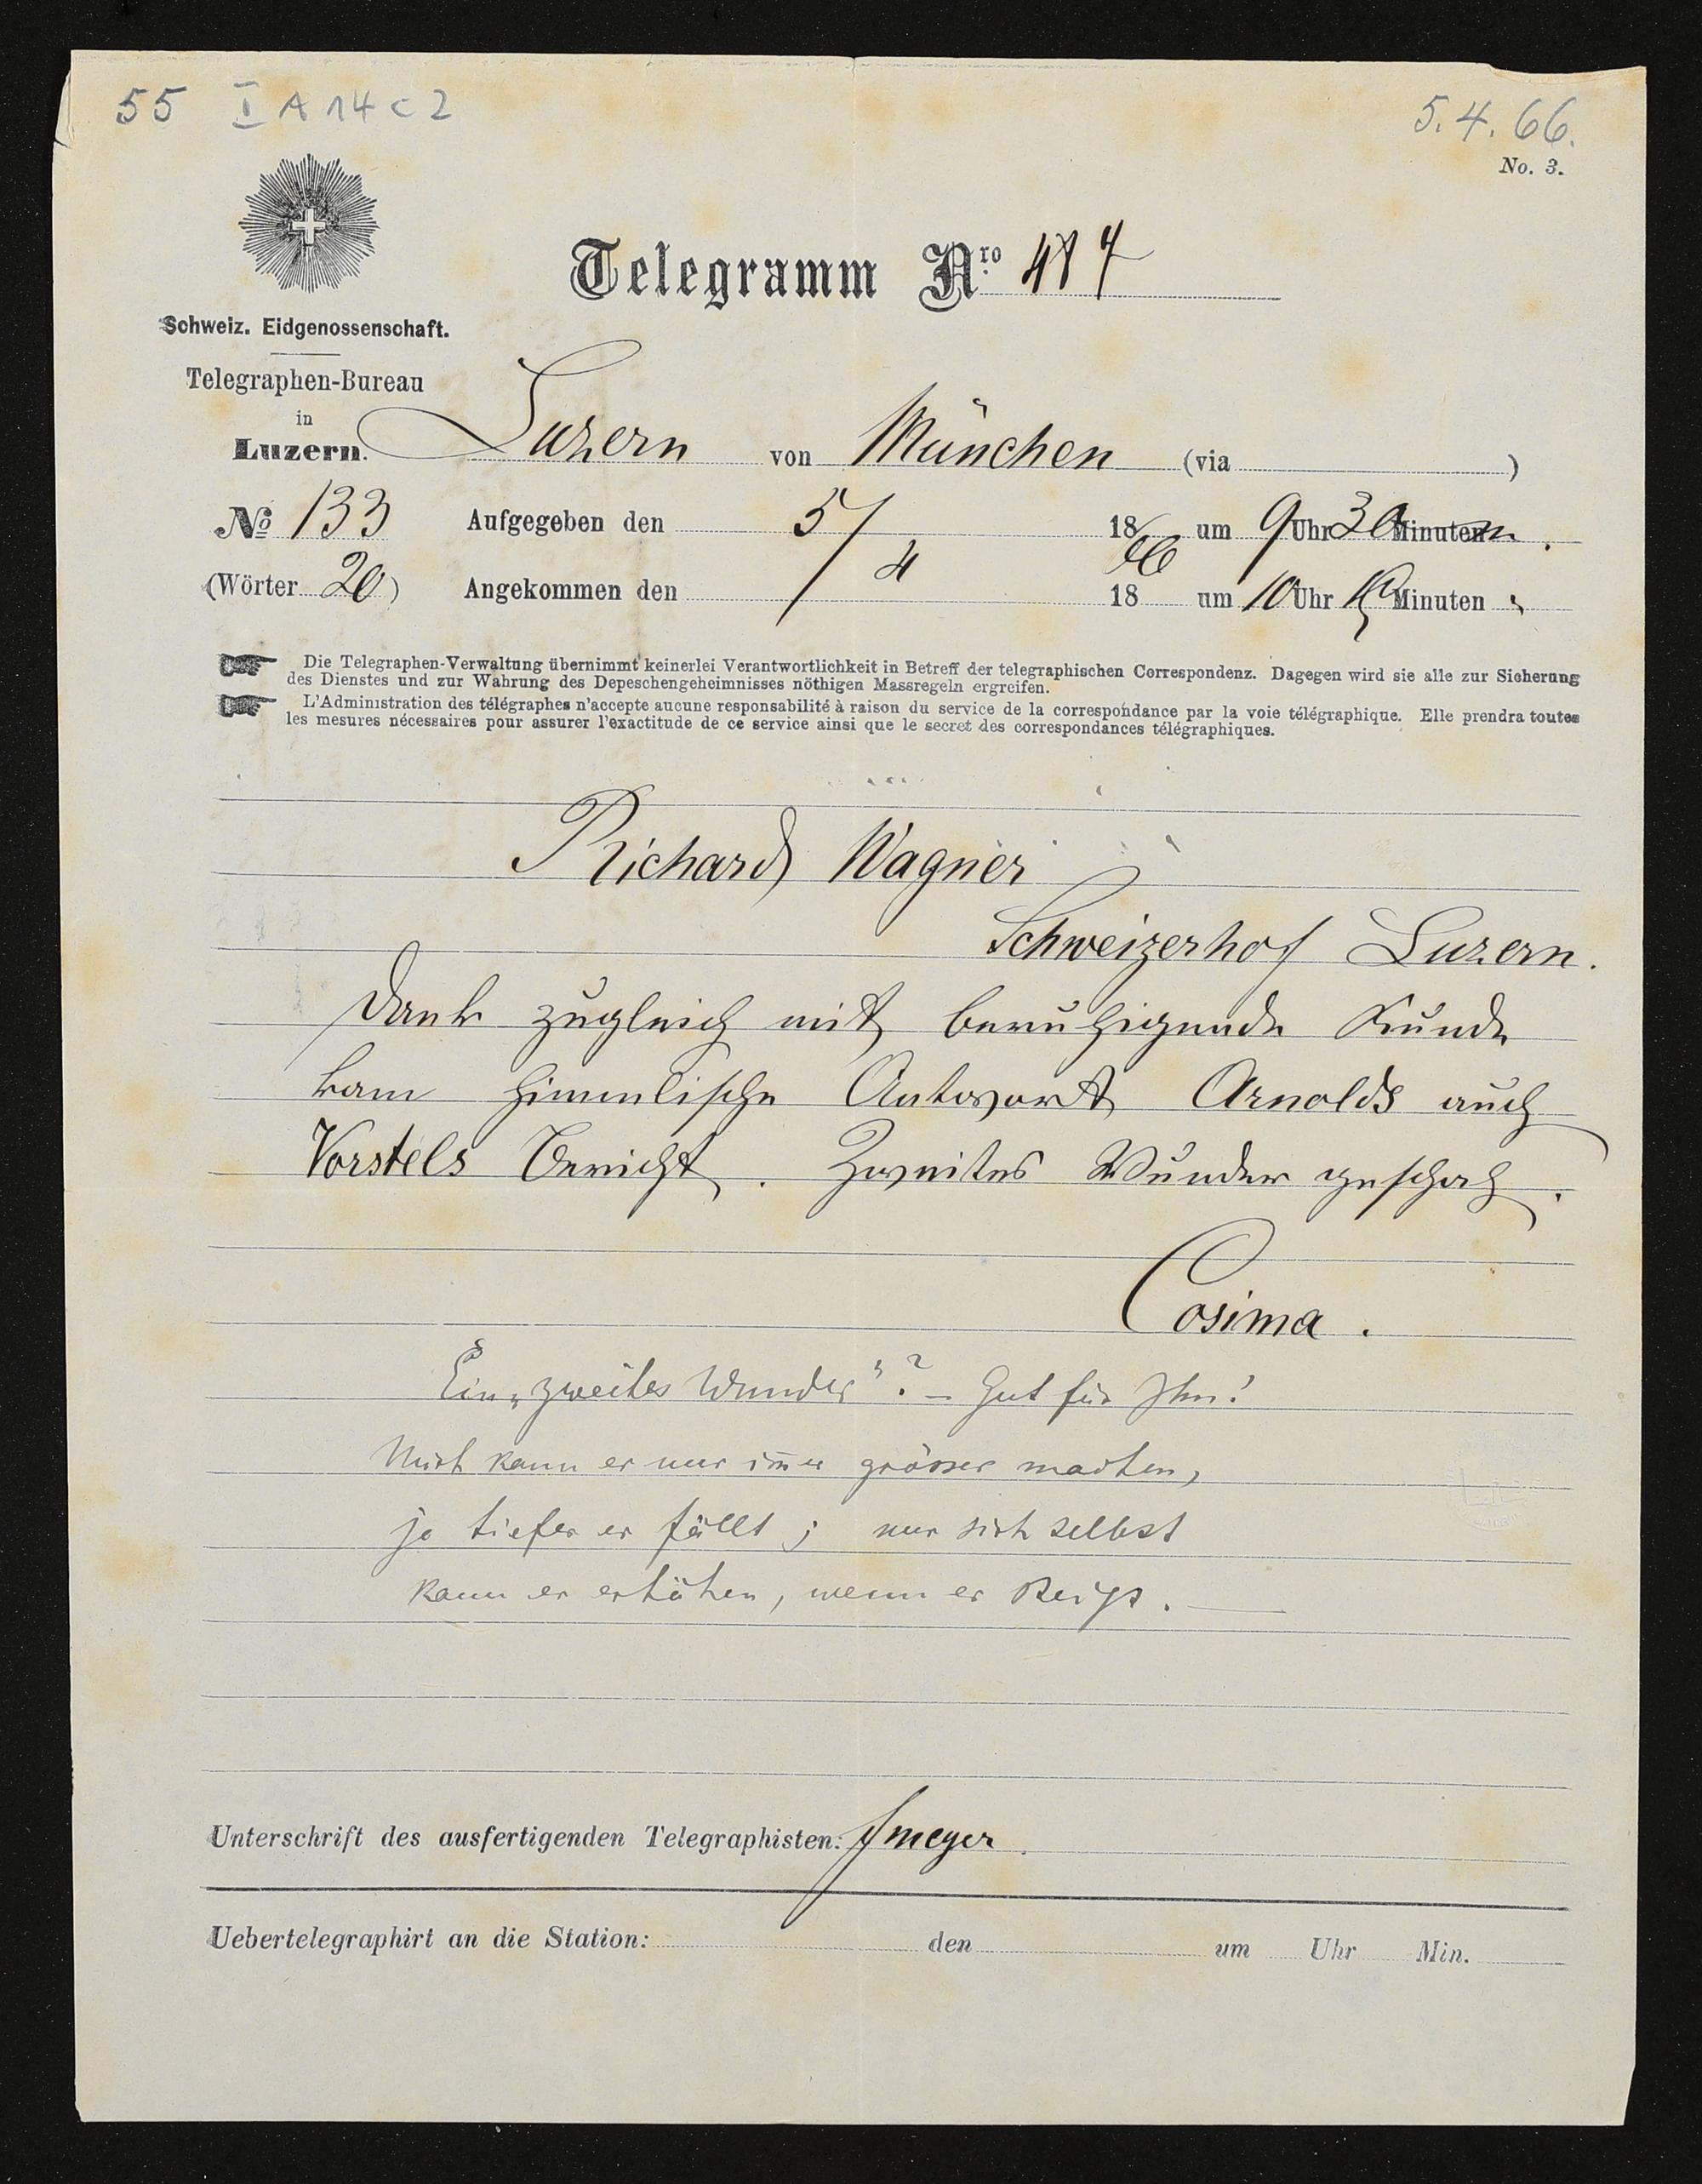 55 I A 14 c 2
5. 4. 66.
No. 3.
Telegramm Nro
Schweiz. Eidgenossenschaft.
Telegraphen-Bureau
in
Luzern. Luzern von München (via )
No 133 Aufgegeben den 5/4 1866 um 9 Uhr 30 Minuten m.
(Wörter 20) Angekommen den 18 um 10 Uhr Minuten "
Die Telegraphen-Verwaltung übernimmt keinerlei Verantwortlichkeit in Betreff der telegraphischen Correspondenz. Dagegen wird sie alle zur Sicherung
des Dienstes und zur Wahrung des Depeschengeheimnisses nöthigen Massregeln ergreifen.
L'Administration des télégraphes n'accepte aucune responsabilité à raison du service de la correspondance par la voie télégraphique. Elle prendra toutes
les mesures nécessaires pour assurer l'exactitude de ce service ainsi que le secret des correspondances télégraphiques.
Richard Wagner
Schweizerhof Luzern.
Dank zugleich mit beruhigende Kunde
kam himmlische Antwort Arnolds auch
Vorstels Bericht. Zweites Wunder geschah.
Cosima.
Ein „zweites Wunder"? – Gut für Ihn!
Mich kann er nur im̄er grösser machen,
je tiefer er fällt; nur sich selbst
kann er erhöhen, wenn er steigt. —
Unterschrift des ausfertigenden Telegraphisten: Jmeyer
Uebertelegraphirt an die Station: den um Uhr Min.